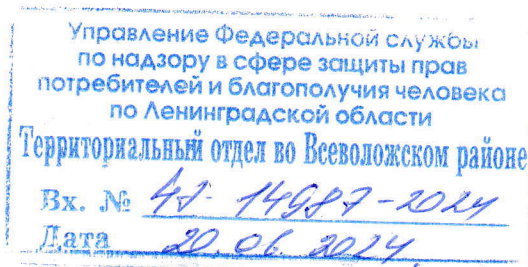 Управление Федеральной службы
по надзору в сфере защиты прав
потребителей и благополучия человека
по Ленинградской области
Территориальный отдел во Всеволожском районе
Вх. № 47-14987-2024
Дата 20.06.2024.